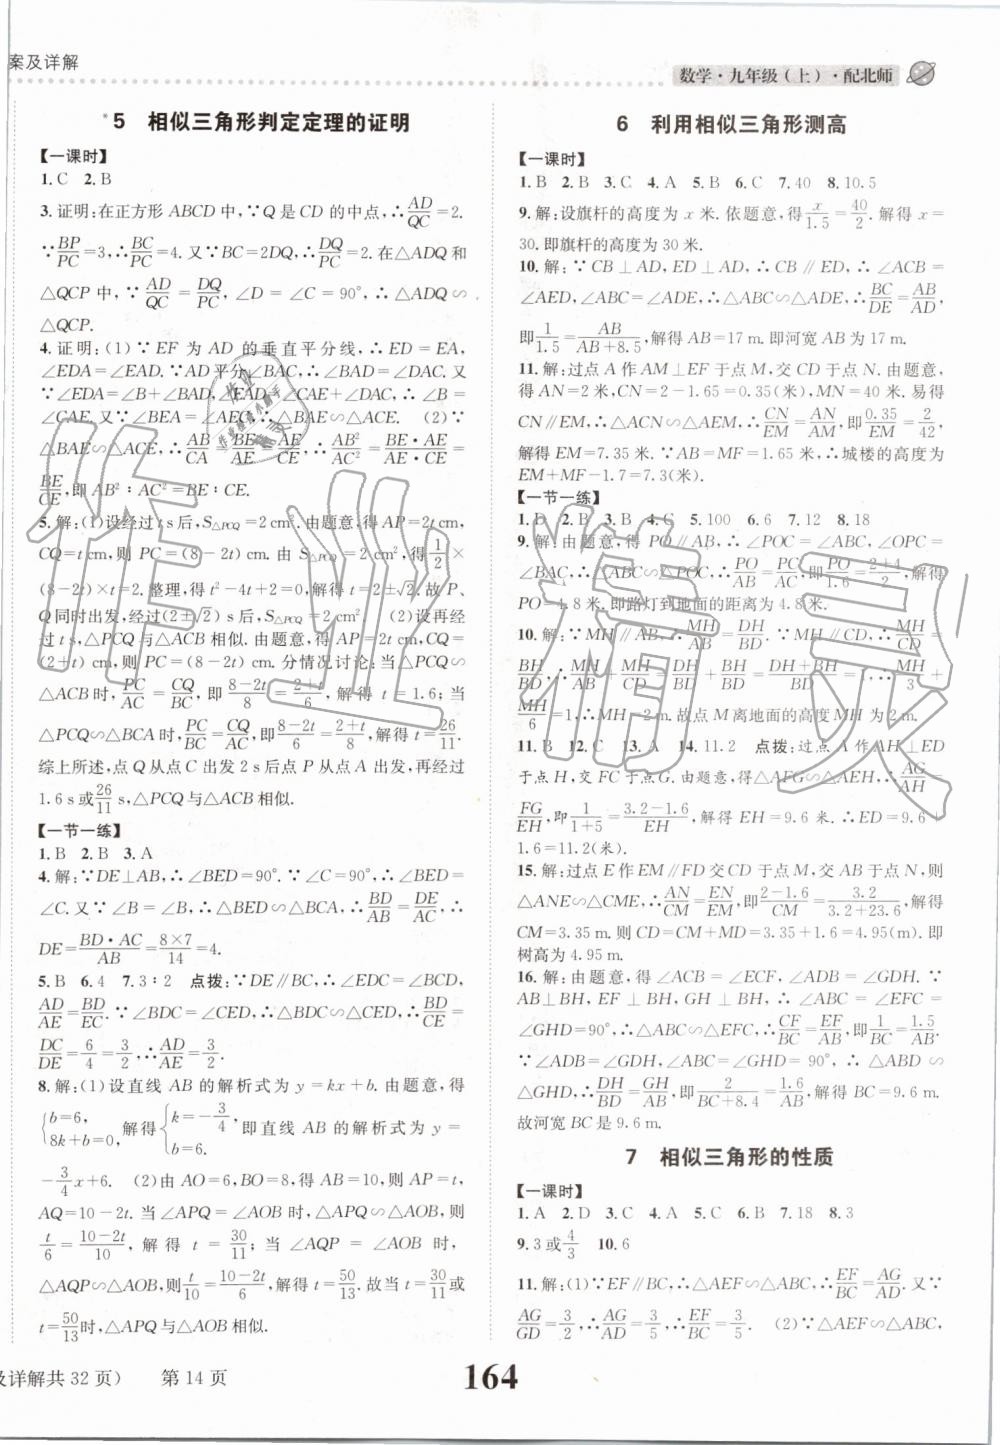 案及详解
数学·九年级(上)·配北师
*5 相似三角形判定定理的证明
【一课时】
1.C 2.B
3.证明:在正方形 ABCD 中,∵Q 是 CD 的中点,∴AD/QC=2.
∵BP/PC=3,∴BC/PC=4.又∵BC=2DQ,∴DQ/PC=2.在△ADQ 和
△QCP 中,∵AD/QC=DQ/PC,∠D=∠C=90°,∴△ADQ∽
△QCP.
4.证明:(1)∵EF 为 AD 的垂直平分线,∴ED=EA,
∠EDA=∠EAD.∵AD平分∠BAC,∴∠BAD=∠DAC.又
∵∠EDA=∠B+∠BAD,∠EAD=∠CAE+∠DAC,∴∠B=
∠CAE.又∵∠BEA=∠AEC,∴△BAE∽△ACE. (2)∵
△BAE∽△ACE,∴AB/CA=BE/AE=AE/CE,∴AB²/AC²=BE·AE/AE·CE=
BE/CE,即 AB²∶AC²=BE∶CE.
5.解:(1)设经过 t s后,S△PCQ=2 cm².由题意,得 AP=2t cm,
CQ=t cm,则 PC=(8-2t)cm.由 S△PCQ=2 cm²,得1/2×
(8-2t)×t=2,整理,得 t²-4t+2=0,解得 t=2±√2.故 P、
Q 同时出发,经过(2±√2)s,S△PCQ=2 cm². (2)设再经
过 t s,△PCQ 与△ACB 相似.由题意,得 AP=2t cm,CQ=
(2+t)cm,则 PC=(8-2t)cm.分情况讨论:当△PCQ∽
△ACB 时,PC/AC=CQ/BC,即8-2t/8=2+t/6,解得 t=1.6;当
△PCQ∽△BCA 时,PC/BC=CQ/AC,即8-2t/6=2+t/8,解得 t=26/11.
综上所述,点 Q 从点 C 出发 2 s后点 P 从点 A 出发,再经过
1.6 s或26/11 s,△PCQ 与△ACB 相似.
【一节一练】
1.B 2.B 3.A
4.解:∵DE⊥AB,∴∠BED=90°.∵∠C=90°,∴∠BED=
∠C.又∵∠B=∠B,∴△BED∽△BCA,∴BD/AB=DE/AC,∴
DE=BD·AC/AB=8×7/14=4.
5.B 6.4 7.3∶2 点拨:∵DE∥BC,∴∠EDC=∠BCD,
AD/AE=BD/EC.∵∠BDC=∠CED,∴△BDC∽△CED,∴BD/CE=
DC/DE=6/4=3/2,∴AD/AE=3/2.
8.解:(1)设直线 AB 的解析式为 y=kx+b.由题意,得
{b=6, 8k+b=0, 解得{k=-3/4, b=6. 即直线 AB 的解析式为 y=
-3/4x+6. (2)由 AO=6,BO=8,得 AB=10,则 AP=t,
AQ=10-2t.当△APQ∽△AOB 时,△APQ∽△AOB,则
t/6=10-2t/10,解得 t=30/11;当△AQP∽△AOB 时,
△AQP∽△AOB,则t/10=10-2t/6,解得 t=50/13.故当 t=30/11或
t=50/13时,△APQ 与△AOB 相似.
6 利用相似三角形测高
【一课时】
1.B 2.B 3.C 4.A 5.B 6.C 7.40 8.10.5
9.解:设旗杆的高度为 x 米.依题意,得x/1.5=40/2.解得 x=
30.即旗杆的高度为 30 米.
10.解:∵CB⊥AD,ED⊥AD,∴CB∥ED,∴∠ACB=
∠AED,∠ABC=∠ADE,∴△ABC∽△ADE,∴BC/DE=AB/AD,
即1/1.5=AB/AB+8.5,解得 AB=17 m.即河宽 AB 为 17 m.
11.解:过点 A 作 AM⊥EF 于点 M,交 CD 于点 N.由题意,
得 AN=2米,CN=2-1.65=0.35(米),MN=40 米.易得
CN∥EM,∴△ACN∽△AEM,∴CN/EM=AN/AM,即0.35/EM=2/42,
解得 EM=7.35 米.∵AB=MF=1.65 米,∴城楼的高度为
EM+MF-1.7=7.3(米).
【一节一练】
1.D 2.B 3.B 4.C 5.100 6.6 7.12 8.18
9.解:由题意,得 PO∥AB,∴∠POC=∠ABC,∠OPC=
∠BAC,∴△ABC∽△POC,∴PO/AB=PC/AC,即PO/1.6=2+4/2,解得
PO=4.8米.即路灯到地面的距离为 4.8米.
10.解:∵MH∥AB,∴MH/AB=DH/BD.∵MH∥CD,∴MH/CD=
BH/BD,∴MH/AB+MH/CD=DH/BD+BH/BD=DH+BH/BD=1,∴MH/3+
MH/6=1,∴MH=2 m.故点 M 离地面的高度 MH 为 2 m.
11.B 12.C 13.A 14.11.2 点拨:过点 A 作 AH⊥ED
于点 H,交 FC 于点 G.由题意,得△AFG∽△AEH,∴AG/AH=
FG/EH,即1/1+5=3.2-1.6/EH,解得 EH=9.6 米.∴ED=9.6+
1.6=11.2(米).
15.解:过点 E 作 EM∥FD 交 CD 于点 M,交 AB 于点 N,则
△ANE∽△CME,∴AN/CM=EN/EM,即2-1.6/CM=3.2/3.2+23.6,解得
CM=3.35 m.则 CD=CM+MD=3.35+1.6=4.95(m).即
树高为 4.95 m.
16.解:由题意,得∠ACB=∠ECF,∠ADB=∠GDH.∵
AB⊥BH,EF⊥BH,GH⊥BH,∴∠ABC=∠EFC=
∠GHD=90°,∴△ABC∽△EFC,∴CF/BC=EF/AB,即1/BC=1.5/AB.
∵∠ADB=∠GDH,∠ABC=∠GHD=90°,∴△ABD∽
△GHD,∴DH/BD=GH/AB,即2/BC+8.4=1.6/AB,解得 BC=9.6 m.
故河宽 BC是 9.6 m.
7 相似三角形的性质
【一课时】
1.A 2.D 3.C 4.A 5.C 6.B 7.18 8.3
9.3 或4/3 10.6
11.解:(1)∵EF∥BC,∴△AEF∽△ABC,∴EF/BC=AG/AD.又∵
AG/GD=3/2,∴AG/AD=3/5,∴EF/BC=3/5. (2)∵△AEF∽△ABC,
及详解共 32 页) 第 14 页
164
作业精灵